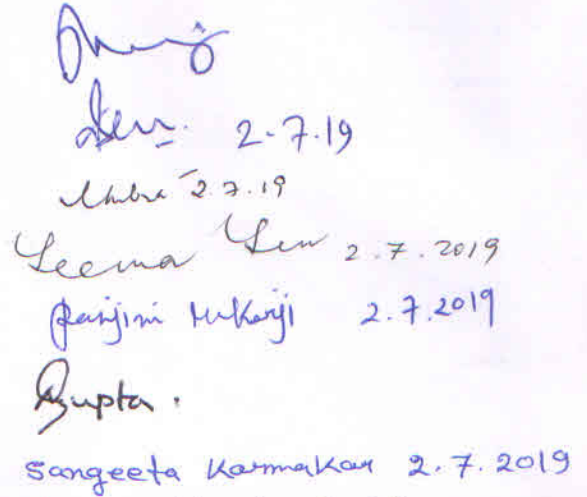 2.7.19
2.7.19
Seema Sen 2.7.2019
Ranjini Mukerji 2.7.2019
Gupta.
Sangeeta Karmakar 2.7.2019